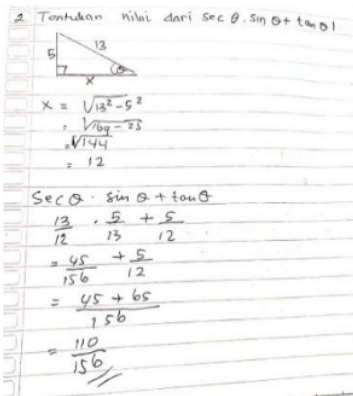 2. Tentukan nilai dari sec θ . sin θ + tan θ !
13
5
θ
x
x = √13² - 5²
= √169 - 25
= √144
= 12
Sec θ . sin θ + tan θ
13/12 . 5/13 + 5/12
= 45/156 + 5/12
= 45 + 65/156
= 110/156